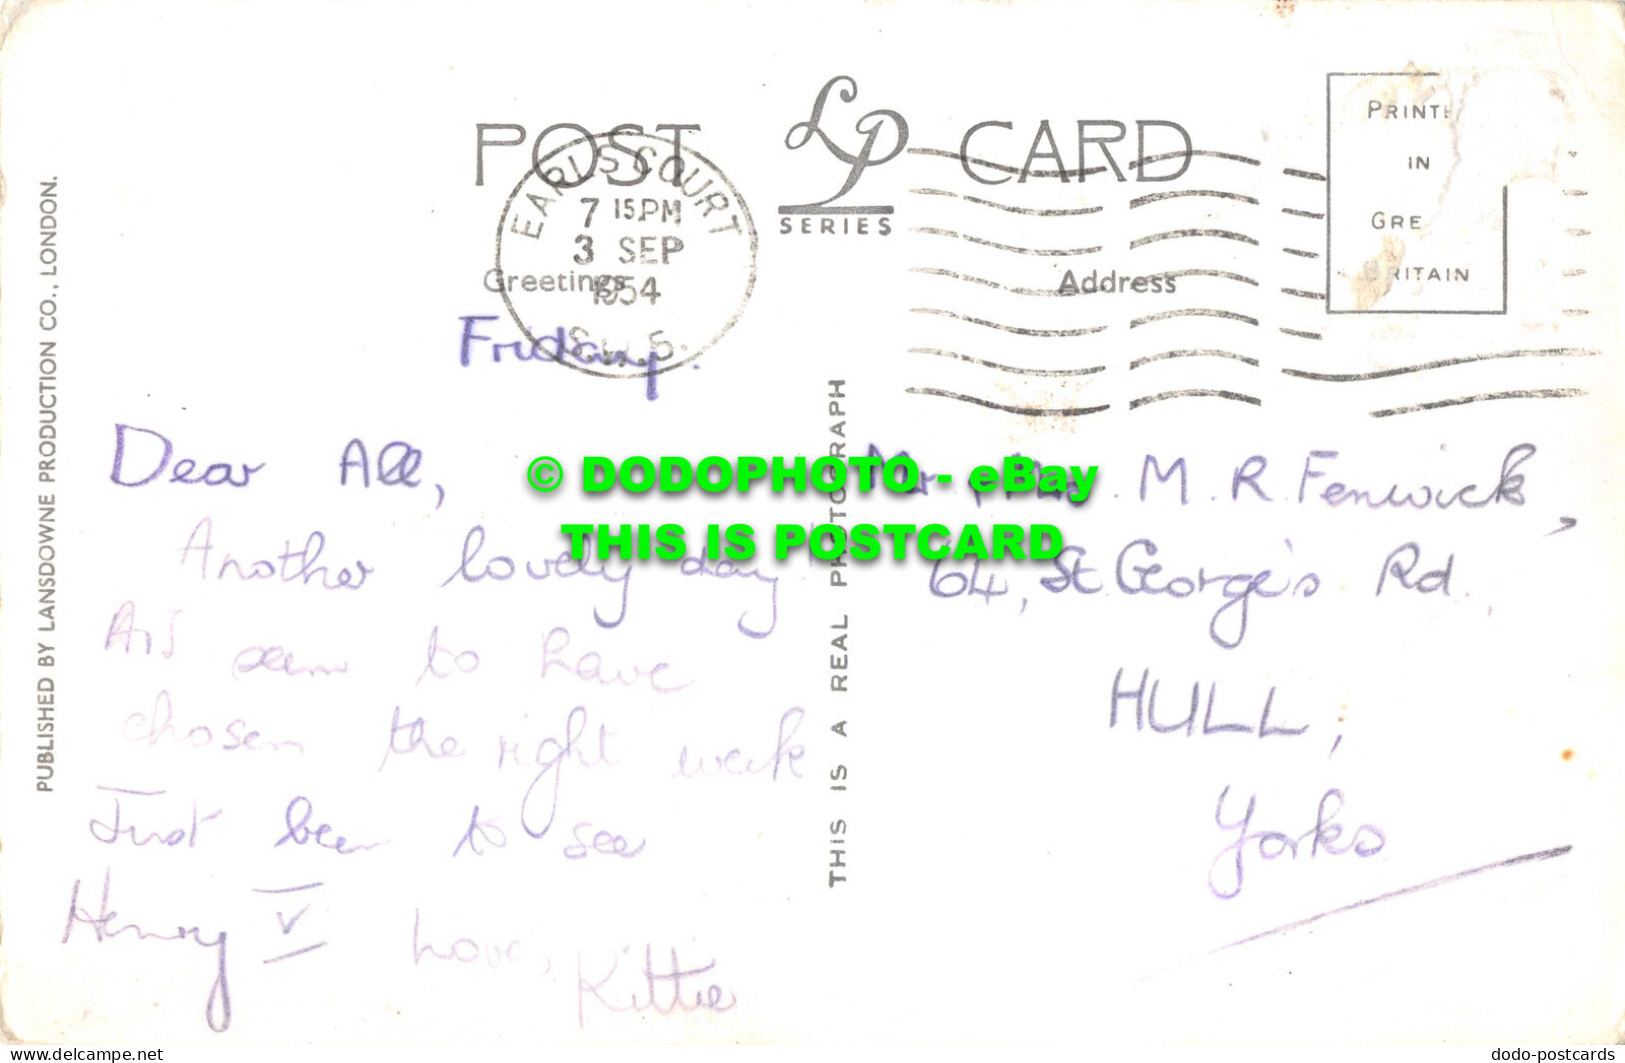 POST LP CARD
SERIES
EARL'S COURT
7 15PM
3 SEP
1954
S.W.5.
Greetings
Address
PRINTE
IN
GRE
BRITAIN
PUBLISHED BY LANSDOWNE PRODUCTION CO., LONDON.
THIS IS A REAL PHOTOGRAPH
Friday.
Dear All,
Another lovely day
seem to have
chosen the right week
Just been to see
Henry V Love,
Kittie
Mr. M. R. Fenwick,
64, St. George's Rd.,
HULL,
Yorks
© DODOPHOTO - eBay
THIS IS POSTCARD
www.delcampe.net
dodo-postcards